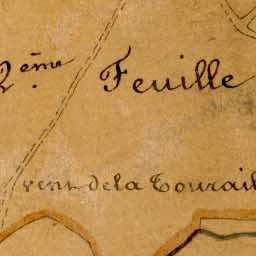 2.ème Feuille
vent de la Tourail